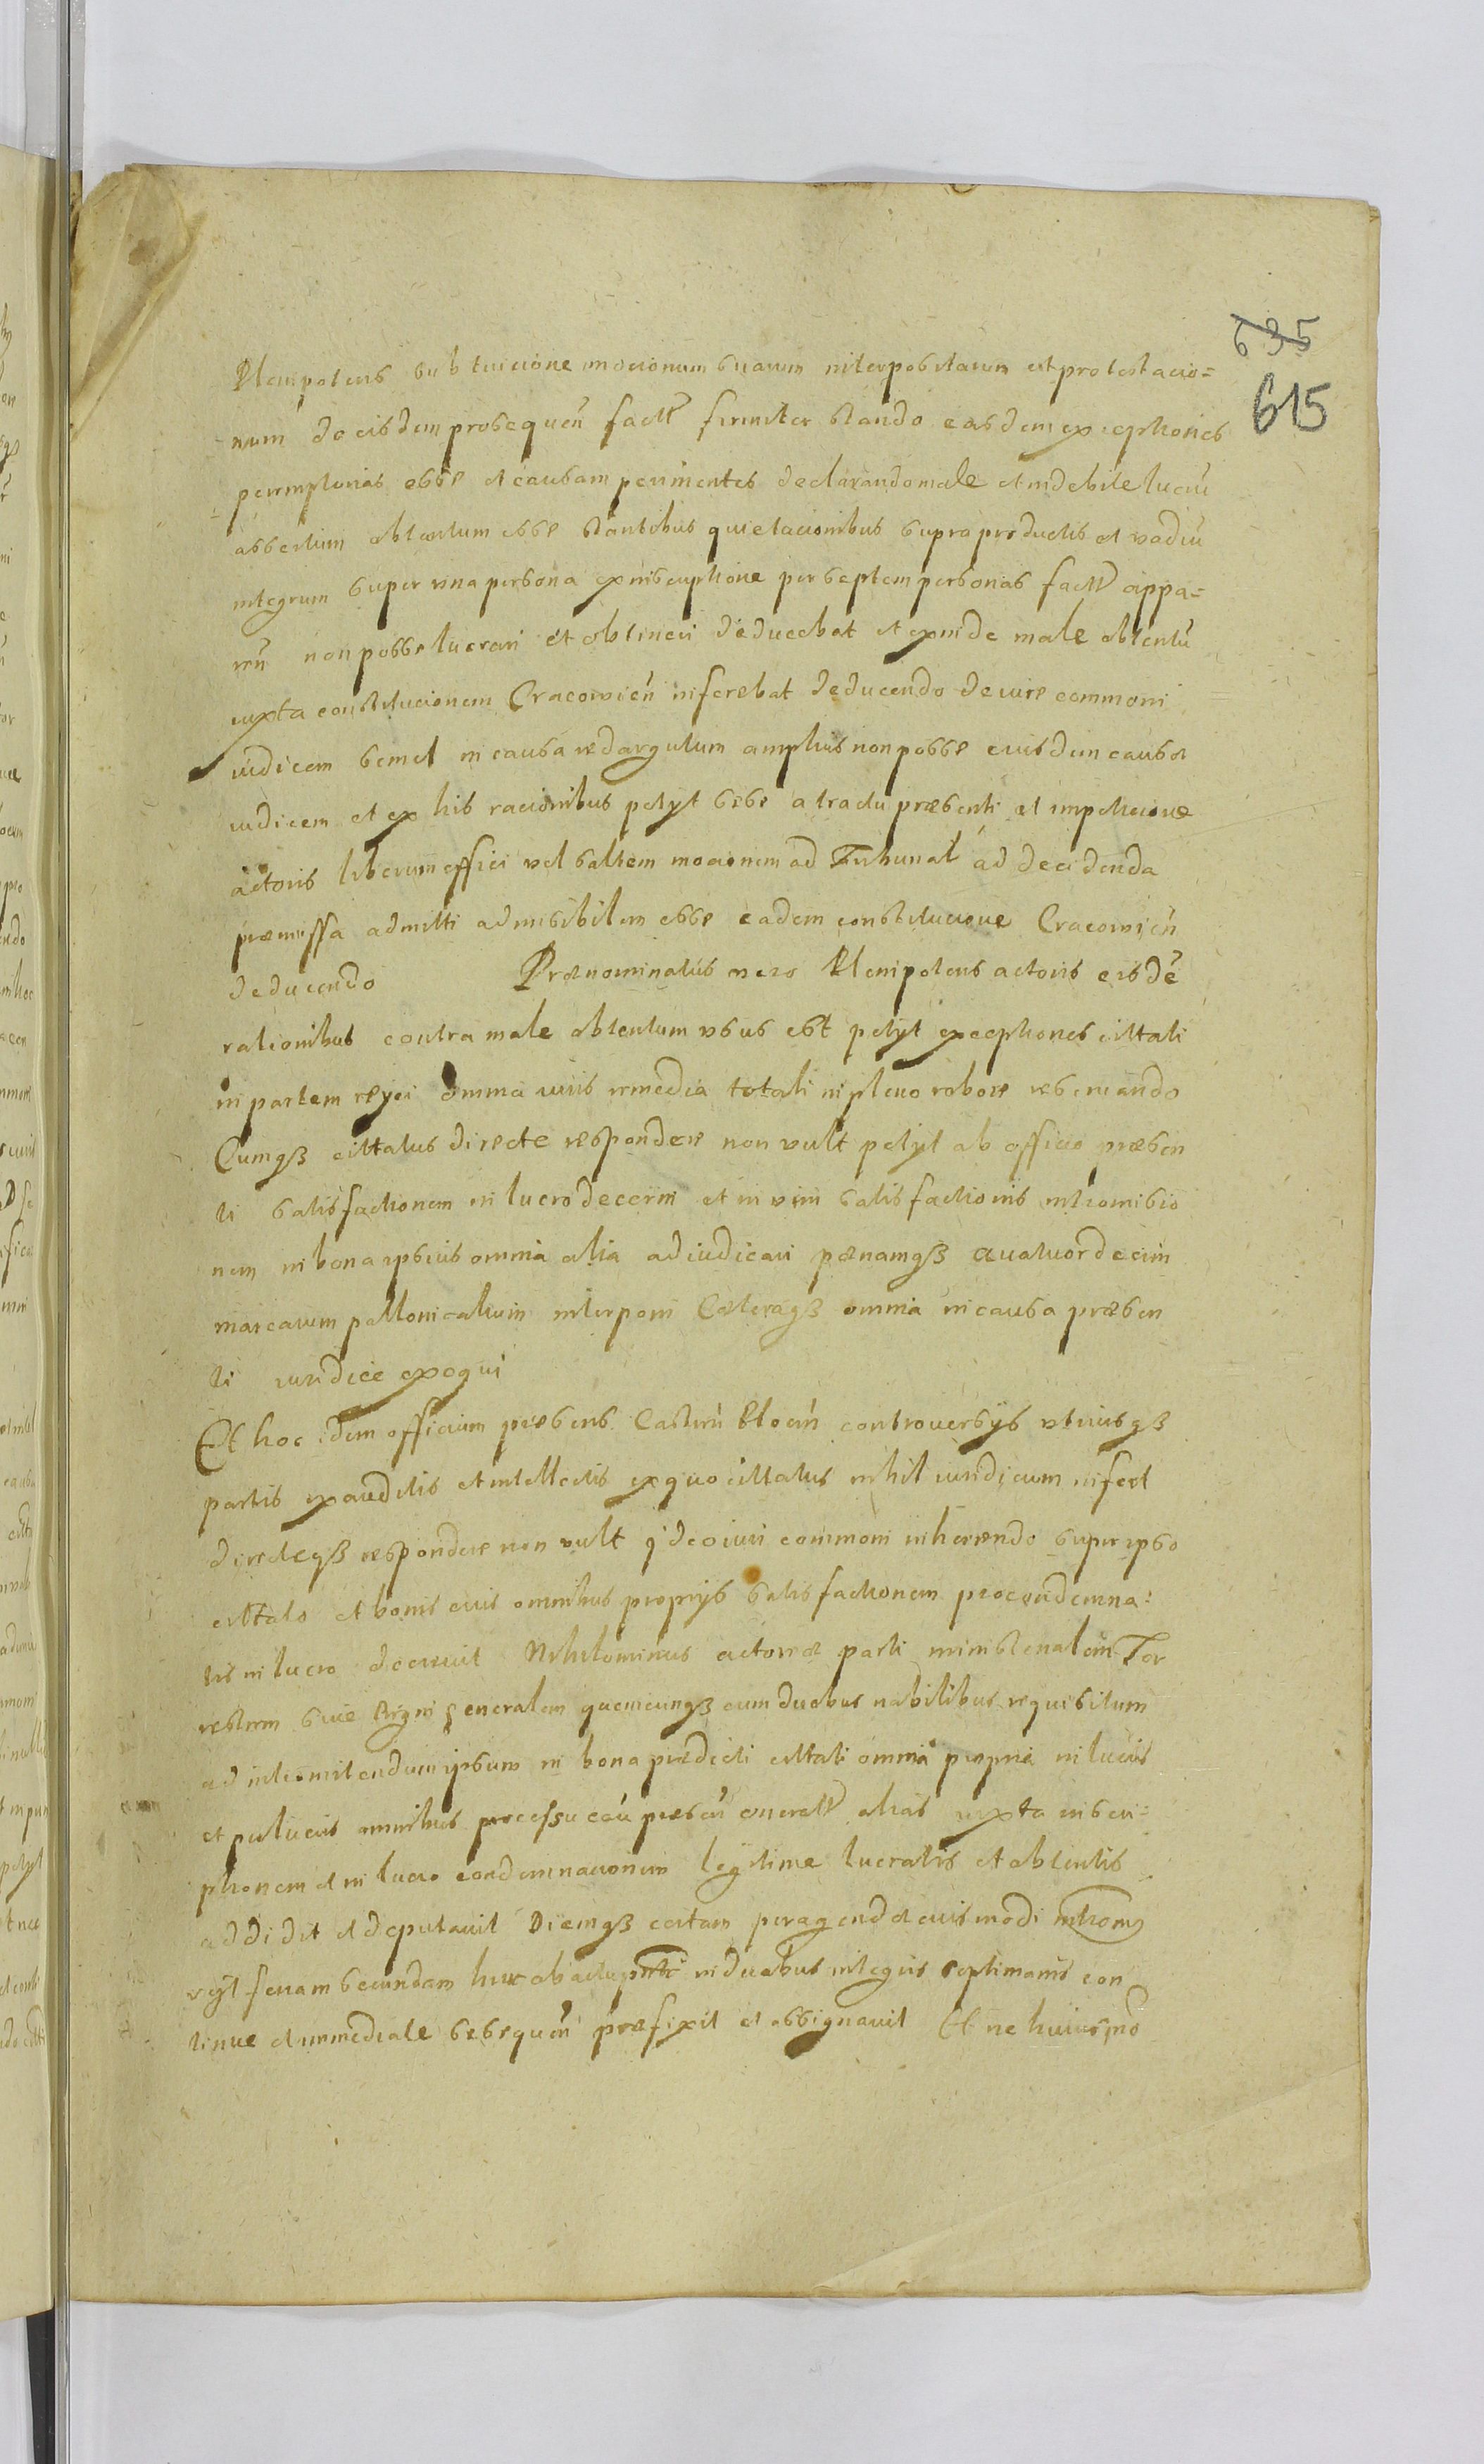 635
615
Plenipotens sub tuicione mocionum suarum interpositarum et protestacio=
num de eisdem prosequen̄ fact̄ firmiter stando easdem exceptiones
peremptorias esse et causam perimentes declarando male et indebite lucrū
assertum obtentum esse stantibus quietacionibus supra productis et vadiū
integrum super vna persona ex inscriptione per septem personas fact̄ appa=
ren̄ non posse lucrari et obtineri deducebat et exinde male obtentū
iuxta constitucionem Cracowien̄ inferebat deducendo de iure communi
iudicem semel in causa redargutum amplius non posse eiusdem causæ
iudicem et ex his racionibus petyt sese a tractu præsenti et impeticione
actoris liberum effici vel saltem mocionem ad Tribunal ad decidenda
præmissa admitti admisibilem esse eadem constitucione Cracowien̄
deducendo Prænominatus vero Plenipotens actoris eisdē
rationibus contra male obtentum vsus est petyt exceptiones cittati
in partem reyci omnia iuris remedia totali in pleno robore reseruando
Cumqꝫ cittatus directe respondere non vult petyt ab officio præsen
ti satisfactionem in lucro decerni et in vim satisfactionis intromissio
nem in bona ipsius omnia alia adiudicari pænamqꝫ quatuordecim
marcarum pollonicalium interponi Cæteraqꝫ omnia in causa præsen
ti iuridice exequi
Et hoc idem officium præsens Castren̄ Plocen̄ controuersijs vtriusqꝫ
partis exauditis et intellectis ex quo cittatus nihil iuridicum infert
directeqꝫ respondere non vult ideo iuri communi inhærendo super ipso
cittato et bonis eius omnibus proprijs satisfactionem pro condemna=
tis in lucro decreuit Nihilominus actoreæ parti ministerialem Ter
restrem siue Regni generalem quemcunqꝫ cum duobus nobilibus requisitum
ad intromittendum ipsum in bona prædicti cittati omnia propria in lucris
et perlucris omnibus processu cau præsen̄ contract̄ alias iuxta inscri=
ptionem et in lucro condemnacionem legitime lucratis et obtentis
addidit et deputauit Diemqꝫ certam peragendæ euismodi intromis
rijt feriam secundam hinc ab actu pn̄ti in duabus integris septimanis con
tinue et immediate sesequen̄ præfixit et assignauit Et ne huiusmō